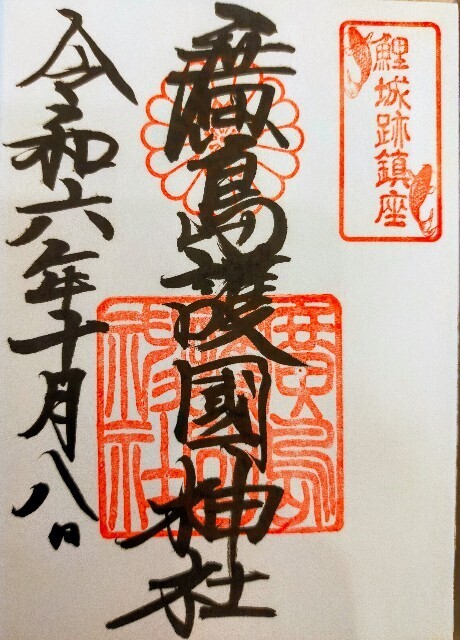 鯉城跡鎮座
廣島護國神社
廣島護國神社
令和六年十月八日